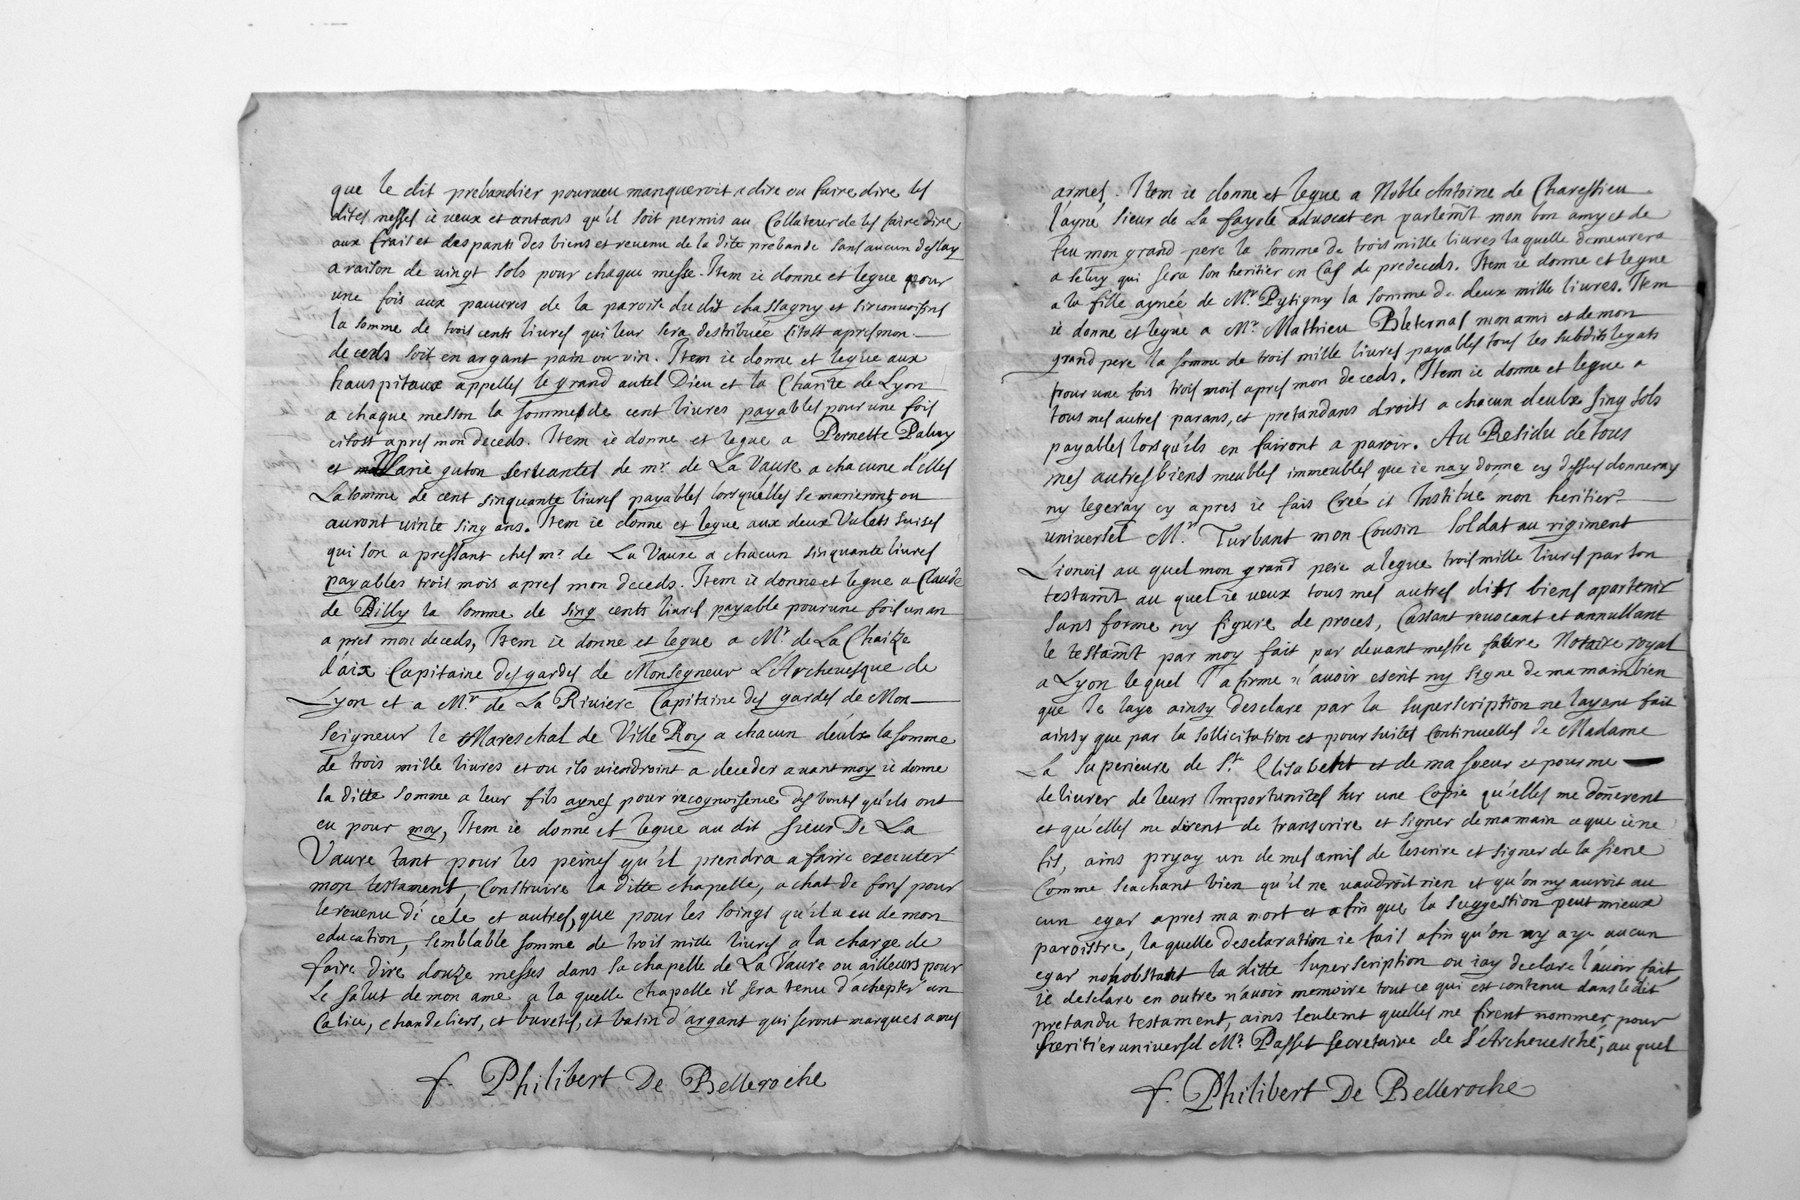 que le dit prebandier pourueu manqueroit a dire ou faire dire les
dites messes ie ueux et antans qu'il soit permis au Collateur de les faire dire
aux frais et despants des biens et reuenu de la dite prebande sans aucun deslay
a raison de uingt sols pour chaque messe. Item ie donne et legue pour
une fois aux pauures de la paroisse du dit chassagny et sirconuoisins
la somme de trois cents liures qui leur sera destribuée sitost apres mon
deceds soit en argant pain ou uin. Item ie donne et legue aux
hauspitaux appellés le grand autel Dieu et la Charité de Lyon
a chaque meson la somme de cent liures payables pour une fois
citost apres mon deceds. Item ie donne et legue a Pernette
et Marie guton seruantes de mr. de La Vaure a chacune d'elles
La somme de cent sinquante liures payables lorsquelles se marieront ou
auront uinte sinq ans. Item ie donne et legue aux deux Valets suises
qui son a pressant ches mr. de La Vaure a chacun sinquante liures
payables trois mois apres mon deceds. Item ie donne et legue a Claude
de Dilly la somme de sinq cents liures payable pour une fois un an
apres mon deceds, Item ie donne et legue a Mr. de La Chaize
d'aix Capitaine des gardes de Monseigneur L'Archeuesque de
Lyon et a Mr. de La Riuiere Capitaine des gardes de Mon
Seigneur le Mareschal de Ville Roy a chacun d'eulx la somme
de trois mille liures et ou ils uiendroint a deceder auant moy ie donne
la ditte somme a leur fils aynes pour recognoisence des bontes qu'ils ont
eu pour moy, Item ie donne et legue au dit sieur De La
Vaure tant pour les peines qu'il prendra a faire executer
mon testament, Construire la ditte chapelle, achat de fons pour
le reuenu d'icéle et autres, que pour les soings qu'il a eu de mon
education, semblable somme de trois mille liures a la charge de
faire dire douze messes dans sa chapelle de La Vaure ou ailleurs pour
Le salut de mon ame a la quelle chapelle il sera tenu d'achepter un
Calice, chandeliers, et buretes, et basin d'argant qui seront marqués a mes
f. Philibert De Belleroche
armes. Item ie donne et legue a Noble Antoine de Charessieu
l'ayné sieur de La fayole aduocat en parlemt mon bon amy et de
feu mon grand pere la somme de trois mille liures laquelle demeurera
a seluy qui sera son heritier en cas de predeceds. Item ie donne et legue
a la fille aynée de Mr. Pytigny la somme de deux mille liures. Item
ie donne et legue a Mr. Mathieu Bleternas mon ami et de mon
grand pere la somme de trois mille liures payables tous les subdits legats
pour une fois trois mois apres mon deceds. Item ie donne et legue a
tous mes autres parans, et pretandans droits a chacun deulx sinq sols
payables lorsqu'els en fairont a paroir. Au Residu de tous
mes autres biens meubles immeubles que ie nay donne cy dessus donneray
ny legeray cy apres ie fais Creé et Institué mon heritier
uniuersel Mr. Turbant mon Cousin soldat au rigiment
Lionois au quel mon grand pere a legue trois mille liures par son
testamt au quel ie ueux tous mes autres dits biens apartenir
sans forme ny figure de proces, Cassant reuocant et annullant
le testamt par moy fait par deuant mestre fabre Notaire royal
a Lyon lequel afirme n'auoir escrit ny signe de ma main bien
que ie laye ainsy desclare par la superscription ne layant fait
ainsy que par la sollicitation et poursuites continuelles de Madame
La superieure de St. Elisabeht et de ma soeur et pour me
deliurer de leurs Importunites sur une Copie qu'elles me donerent
et qu'elles me dirent de transcrire et signer de ma main ce que ie ne
fis, ains pryay un de mes amis de lescrire et signer de la siene
Comme scachant bien qu'il ne uaudroit rien et qu'on ny auroit au
cun egar apres ma mort et afin que la suggestion peut mieux
paroistre, la quelle desclaration ie fais afin qu'on ny aye aucun
egar nonobstant la ditte superscription ou iay declare l'auoir fait
ie desclare en outre n'auoir memoire tout ce qui est contenu dans le dit
pretandu testament, ains seulemt quelles me firent nommer pour
heritier uniuersel Mr. Passet secretaire de l'Archeuesché, au quel
f. Philibert De Belleroche